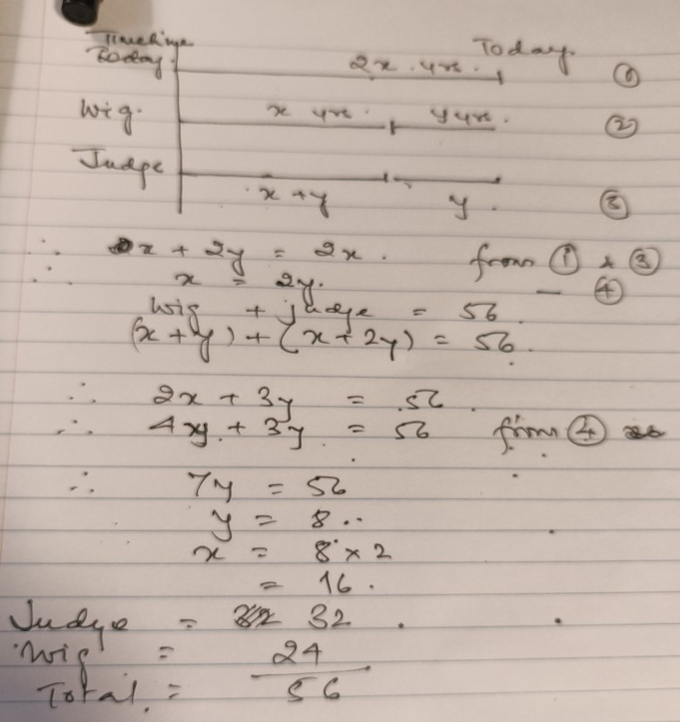 Timeline Today
Today. 2x yrs. ①
Wig. x yrs. y yrs. ②
Judge
x + y y. ③
∴ x + 2y = 2x. from ① & ③
∴ x = 2y. — ④
Wig + judge = 56
(x + y) + (x + 2y) = 56.
∴ 2x + 3y = 56.
∴ 4y + 3y = 56 from ④
∴ 7y = 56
y = 8..
x = 8 × 2
= 16.
Judge = 32.
Wig = 24
Total = 56